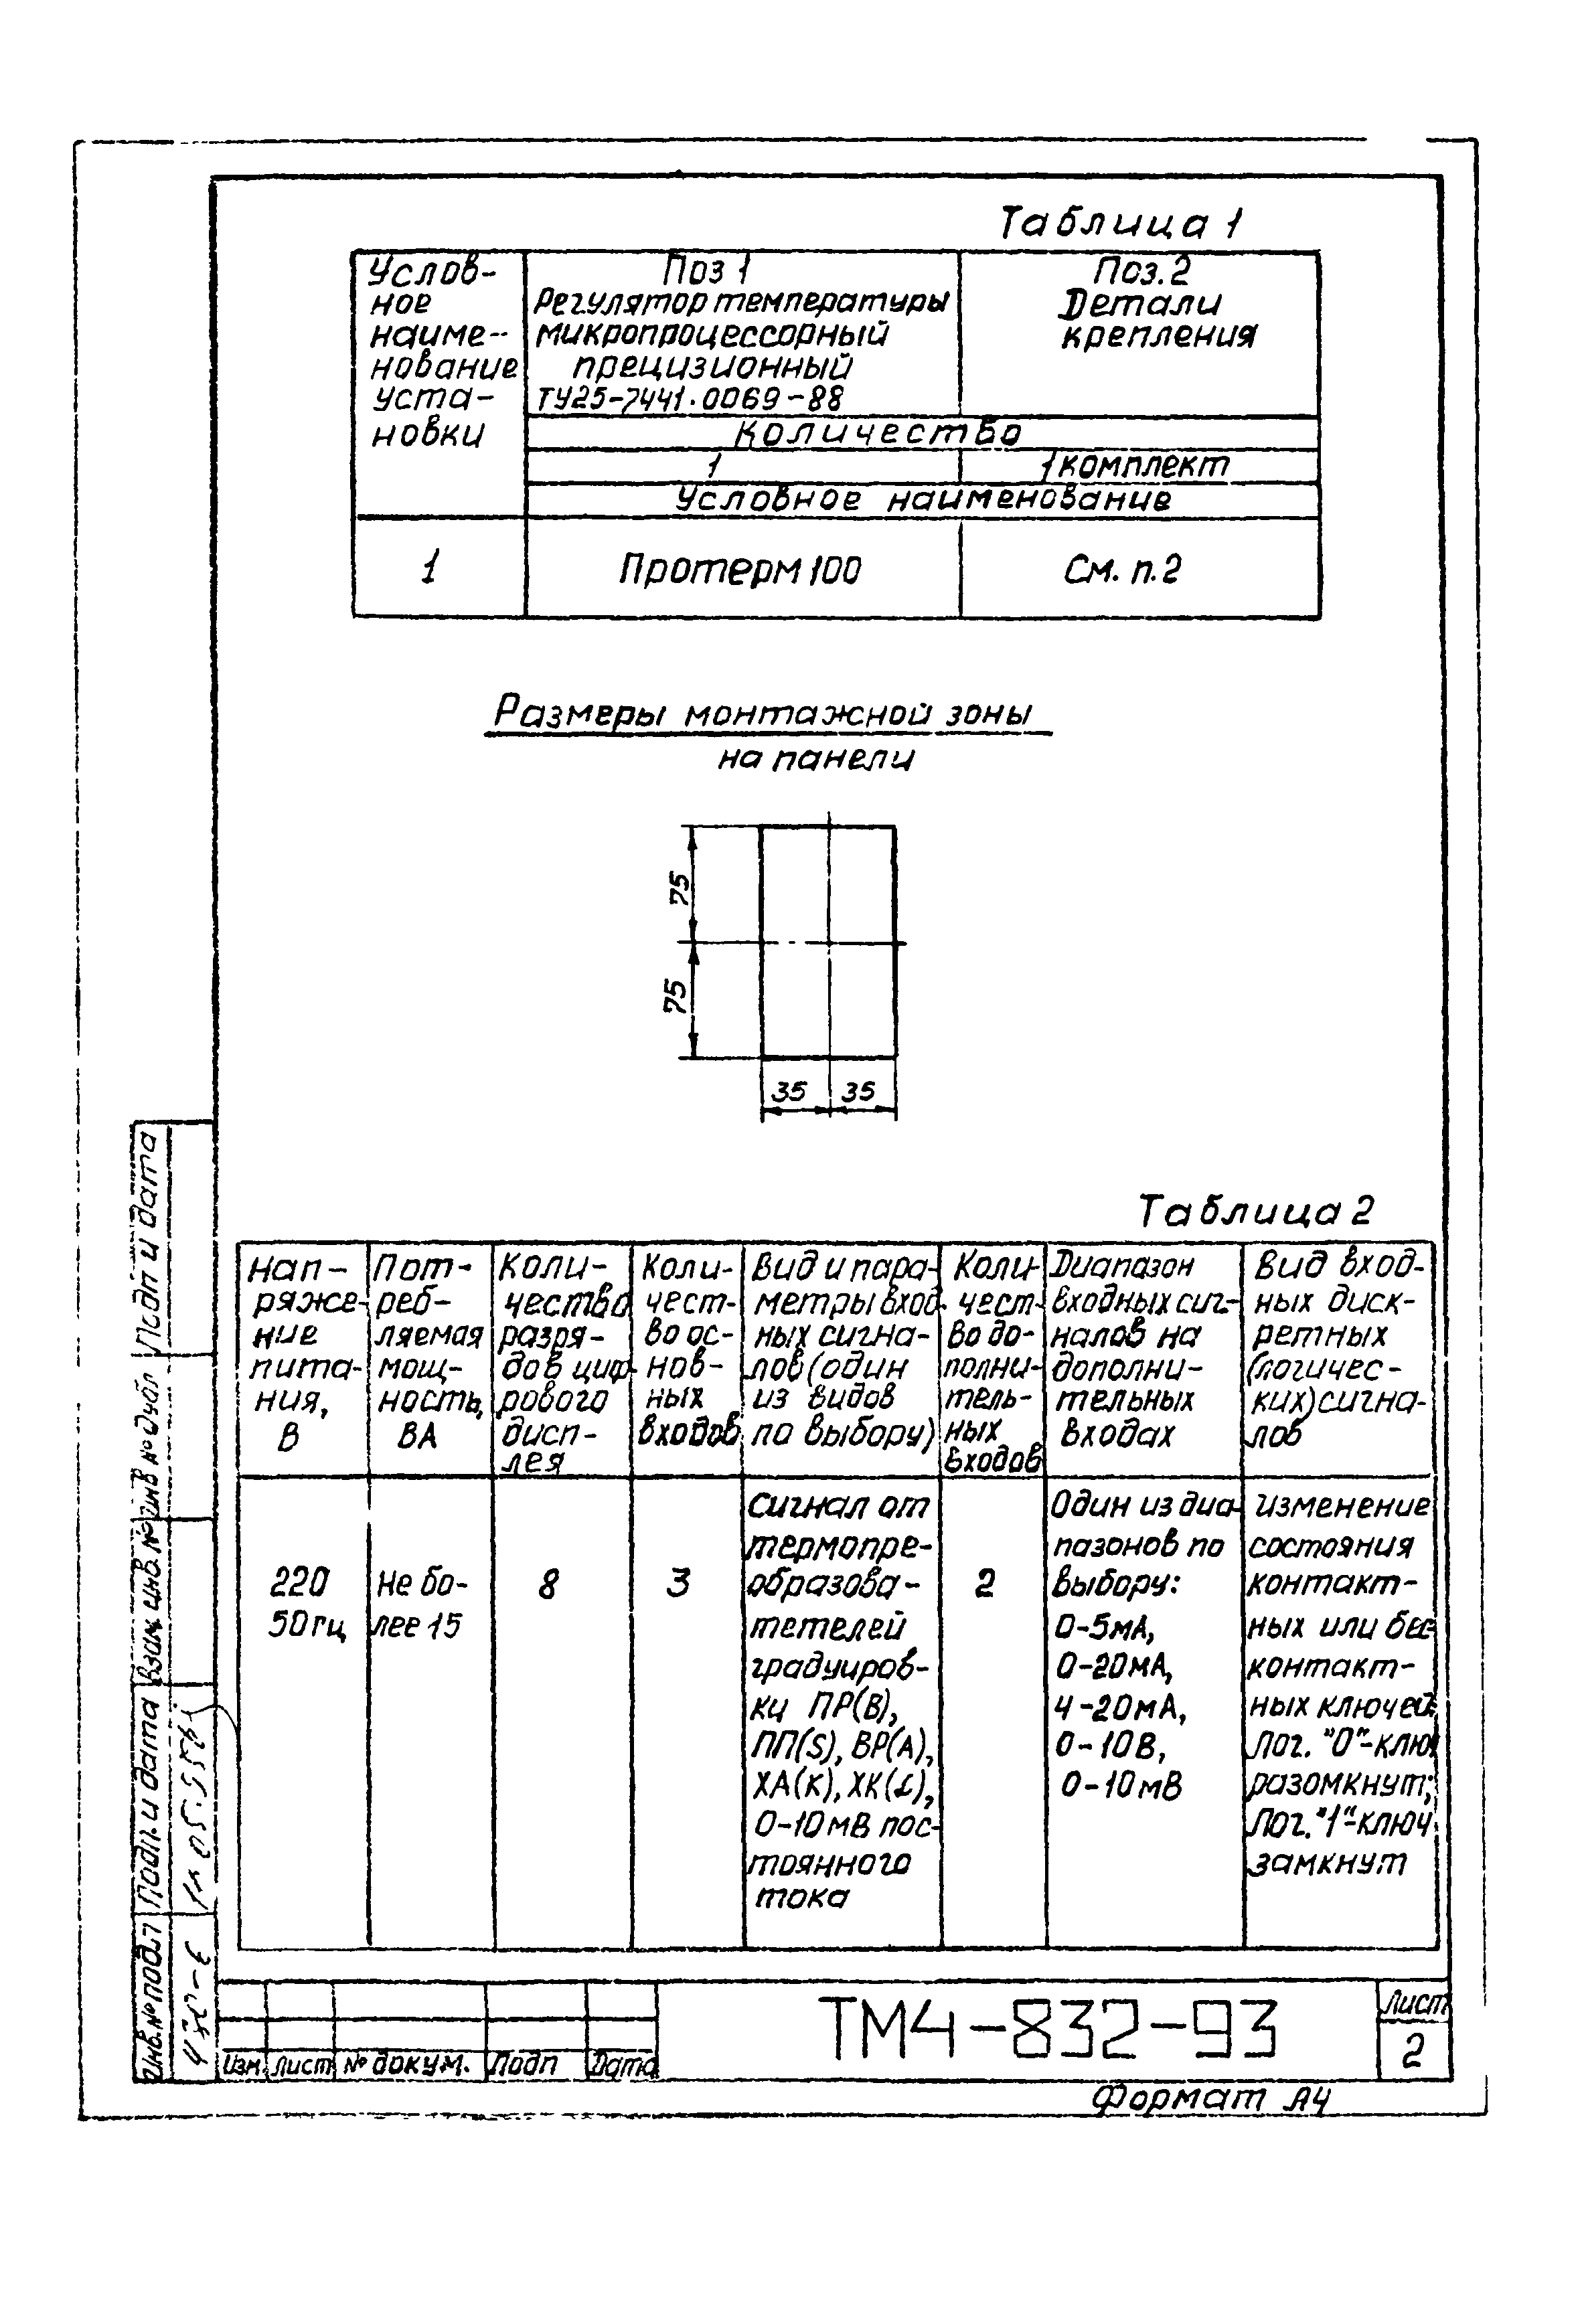 Таблица 1
Услов-
ное
наиме-
нование
уста-
новки
Поз 1
Регулятор температуры
микропроцессорный
прецизионный
ТУ25-7441.0069-88
Поз. 2
Детали
крепления
Количество
1
1 комплект
Условное наименование
1
Протерм 100
См. п. 2
Размеры монтажной зоны
на панели
75
75
35
35
Таблица 2
Нап-
ряже-
ние
пита-
ния,
В
Пот-
реб-
ляемая
мощ-
ность,
ВА
Коли-
чество
разря-
дов циф-
рового
дисп-
лея
Коли-
чест-
во ос-
нов-
ных
входов
Вид и пара-
метры вход-
ных сигна-
лов (один
из видов
по выбору)
Коли-
чест-
во до-
полни-
тель-
ных
входов
Диапазон
входных сиг-
налов на
дополни-
тельных
входах
Вид вход-
ных диск-
ретных
(логичес-
ких) сигна-
лов
220
50 гц
Не бо-
лее 15
8
3
Сигнал от
термопре-
образова-
тетелей
градуиров-
ки ПР(В),
ПП(S), ВР(А),
ХА(К), ХК(L),
0-10мВ пос-
тоянного
тока
2
Один из диа-
пазонов по
выбору:
0-5мА,
0-20мА,
4-20мА,
0-10В,
0-10мВ
Изменение
состояния
контакт-
ных или бес-
контакт-
ных ключей:
Лог. "0"-ключ
разомкнут;
Лог. "1"-ключ
замкнут
Подп и дата
Инв № дубл
Взам. инв. №
Подп. и дата
Инв. № подл
Изм.
Лист
№ докум.
Подп
Дата
ТМ4-832-93
Лист
2
Формат А4